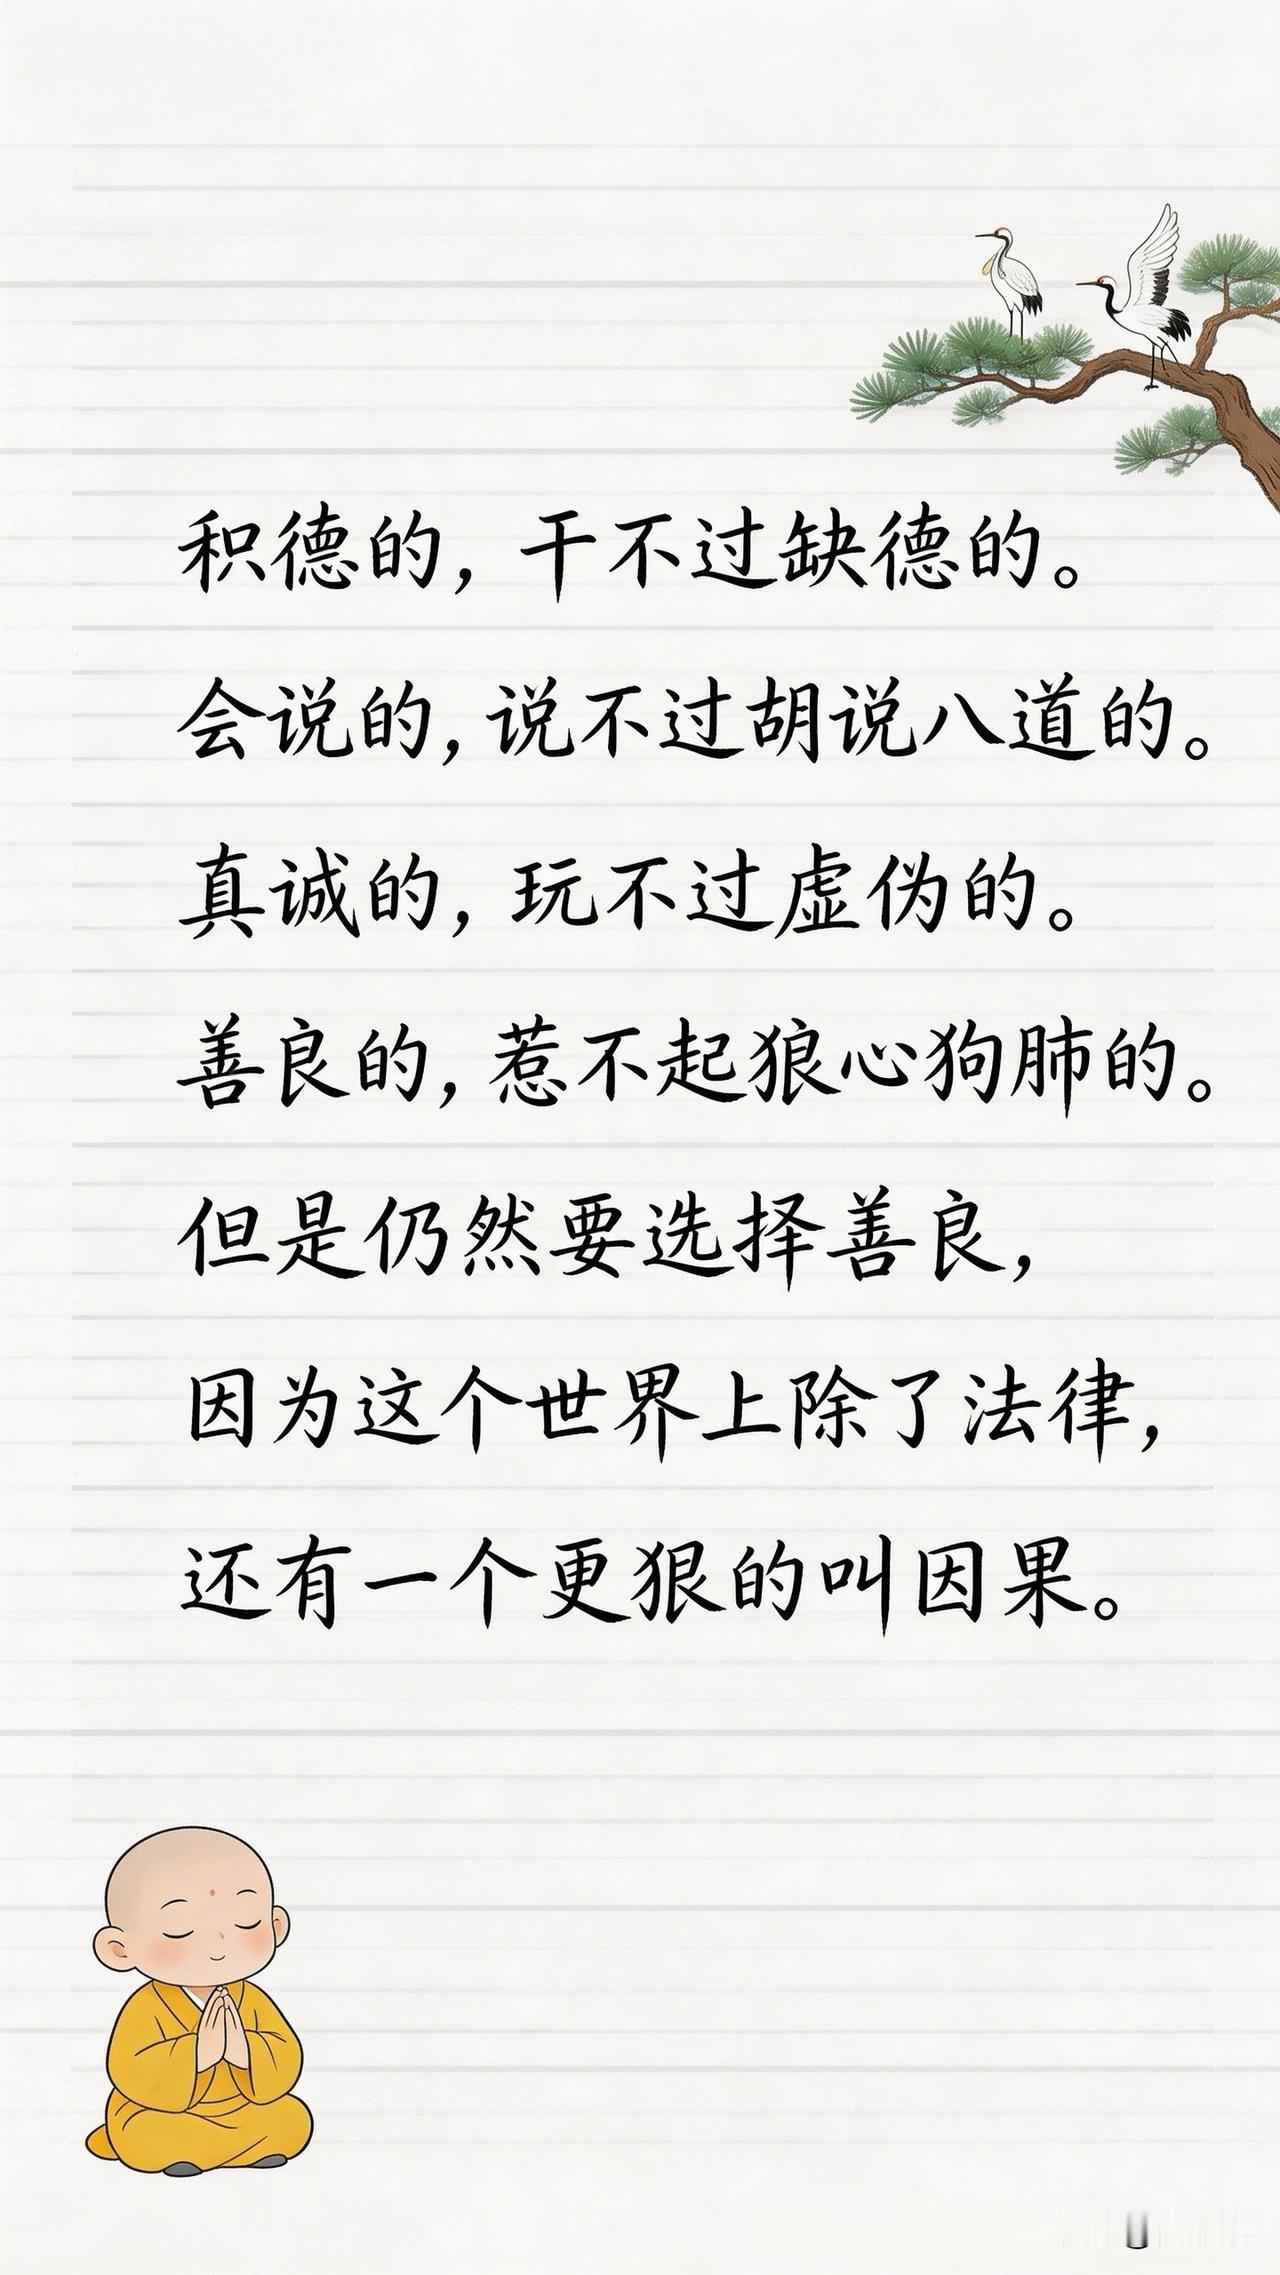 积德的，干不过缺德的。
会说的，说不过胡说八道的。
真诚的，玩不过虚伪的。
善良的，惹不起狼心狗肺的。
但是仍然要选择善良，
因为这个世界上除了法律，
还有一个更狠的叫因果。